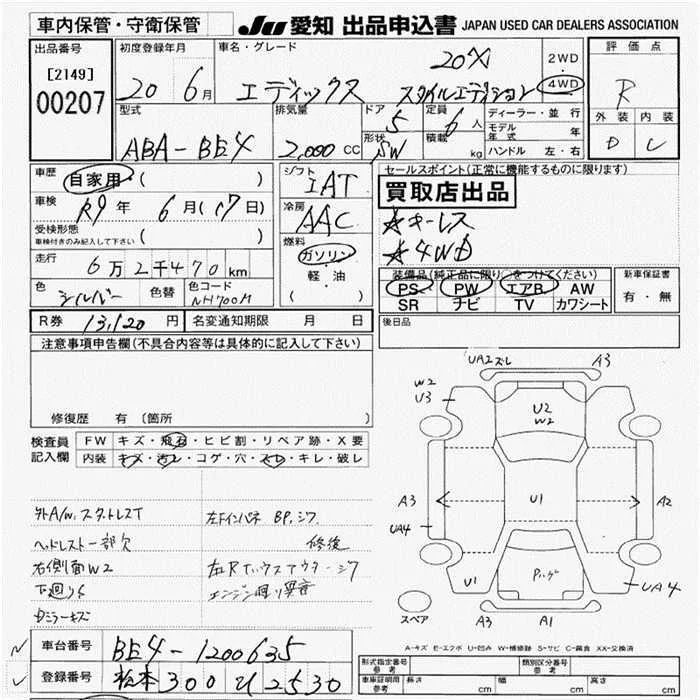 車内保管・守衛保管
JU 愛知 出品申込書 JAPAN USED CAR DEALERS ASSOCIATION
出品番号
[2149]
00207
初度登録年月
20年 6月
車名・グレード
エディックス 20X スタイルエディション
2WD
・
4WD
評価点
R
外装 内装
D C
型式
ABA-BE4
排気量
2,000 CC
ドア
5
形状
SW
定員
6人
積載
kg
ディーラー・並行
モデル年式 年
ハンドル 左・右
車歴 自家用・( )
車検 R9年 6月(17日)
受検形態
車検付きのみ記入して下さい ( )
走行 6万2千470km
色 シルバー 色替 色コード NH700M
シフト
IAT
冷房
AAC
燃料
ガソリン
・
軽・油
( )
セールスポイント(正常に機能するものに限ります)
買取店出品
☆キーレス
☆4WD
装備品(純正品に限り○をつけてください)
PS PW エアB AW
SR ナビ TV カワシート
新車保証書
有・無
R券 13,120円 名変通知期限 月 日
後日品
注意事項申告欄(不具合内容等は具体的に記入して下さい)
修復歴 有 〔箇所 〕
検査員記入欄
FW キズ・飛石・ヒビ割・リペア跡・X要
内装 キズ・汚レ・コゲ・穴・スレ・キレ・破レ
外A/W,スタットレスT
ヘッドレスト一部欠
右側面W2
下廻りC
左ドインパネ BP,シワ
修後
エンジン廻り異音
UA2ズレ A3
W2
U3
U2
W2
A3
U1
A2
UA4
U1
UA4
スペア
A3 A1
A-キズ E-エクボ U-凹み W-補修跡 S-サビ C-腐食 XX-交換済
車台番号 BE4-1200635
登録番号 松本300 ひ2530
形式指定番号
参考
類別区分番号
参考
車庫証明用
参考
長さ cm 幅 cm 高さ cm